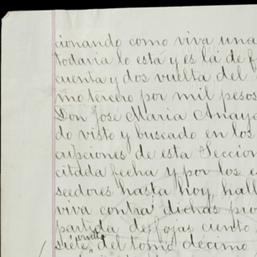 cionando como viva una
todavia lo está y es la de f
cuenta y dos vuelta del
mo tercero por mil pesos
Don José Maria Anaya
do visto y buscado en los
cripciones de esta Seccion
citada fecha y por los
seedores hasta hoy, hall
viva contra dichas
partida de fojas ciento
siete vuelta del tomo décimo